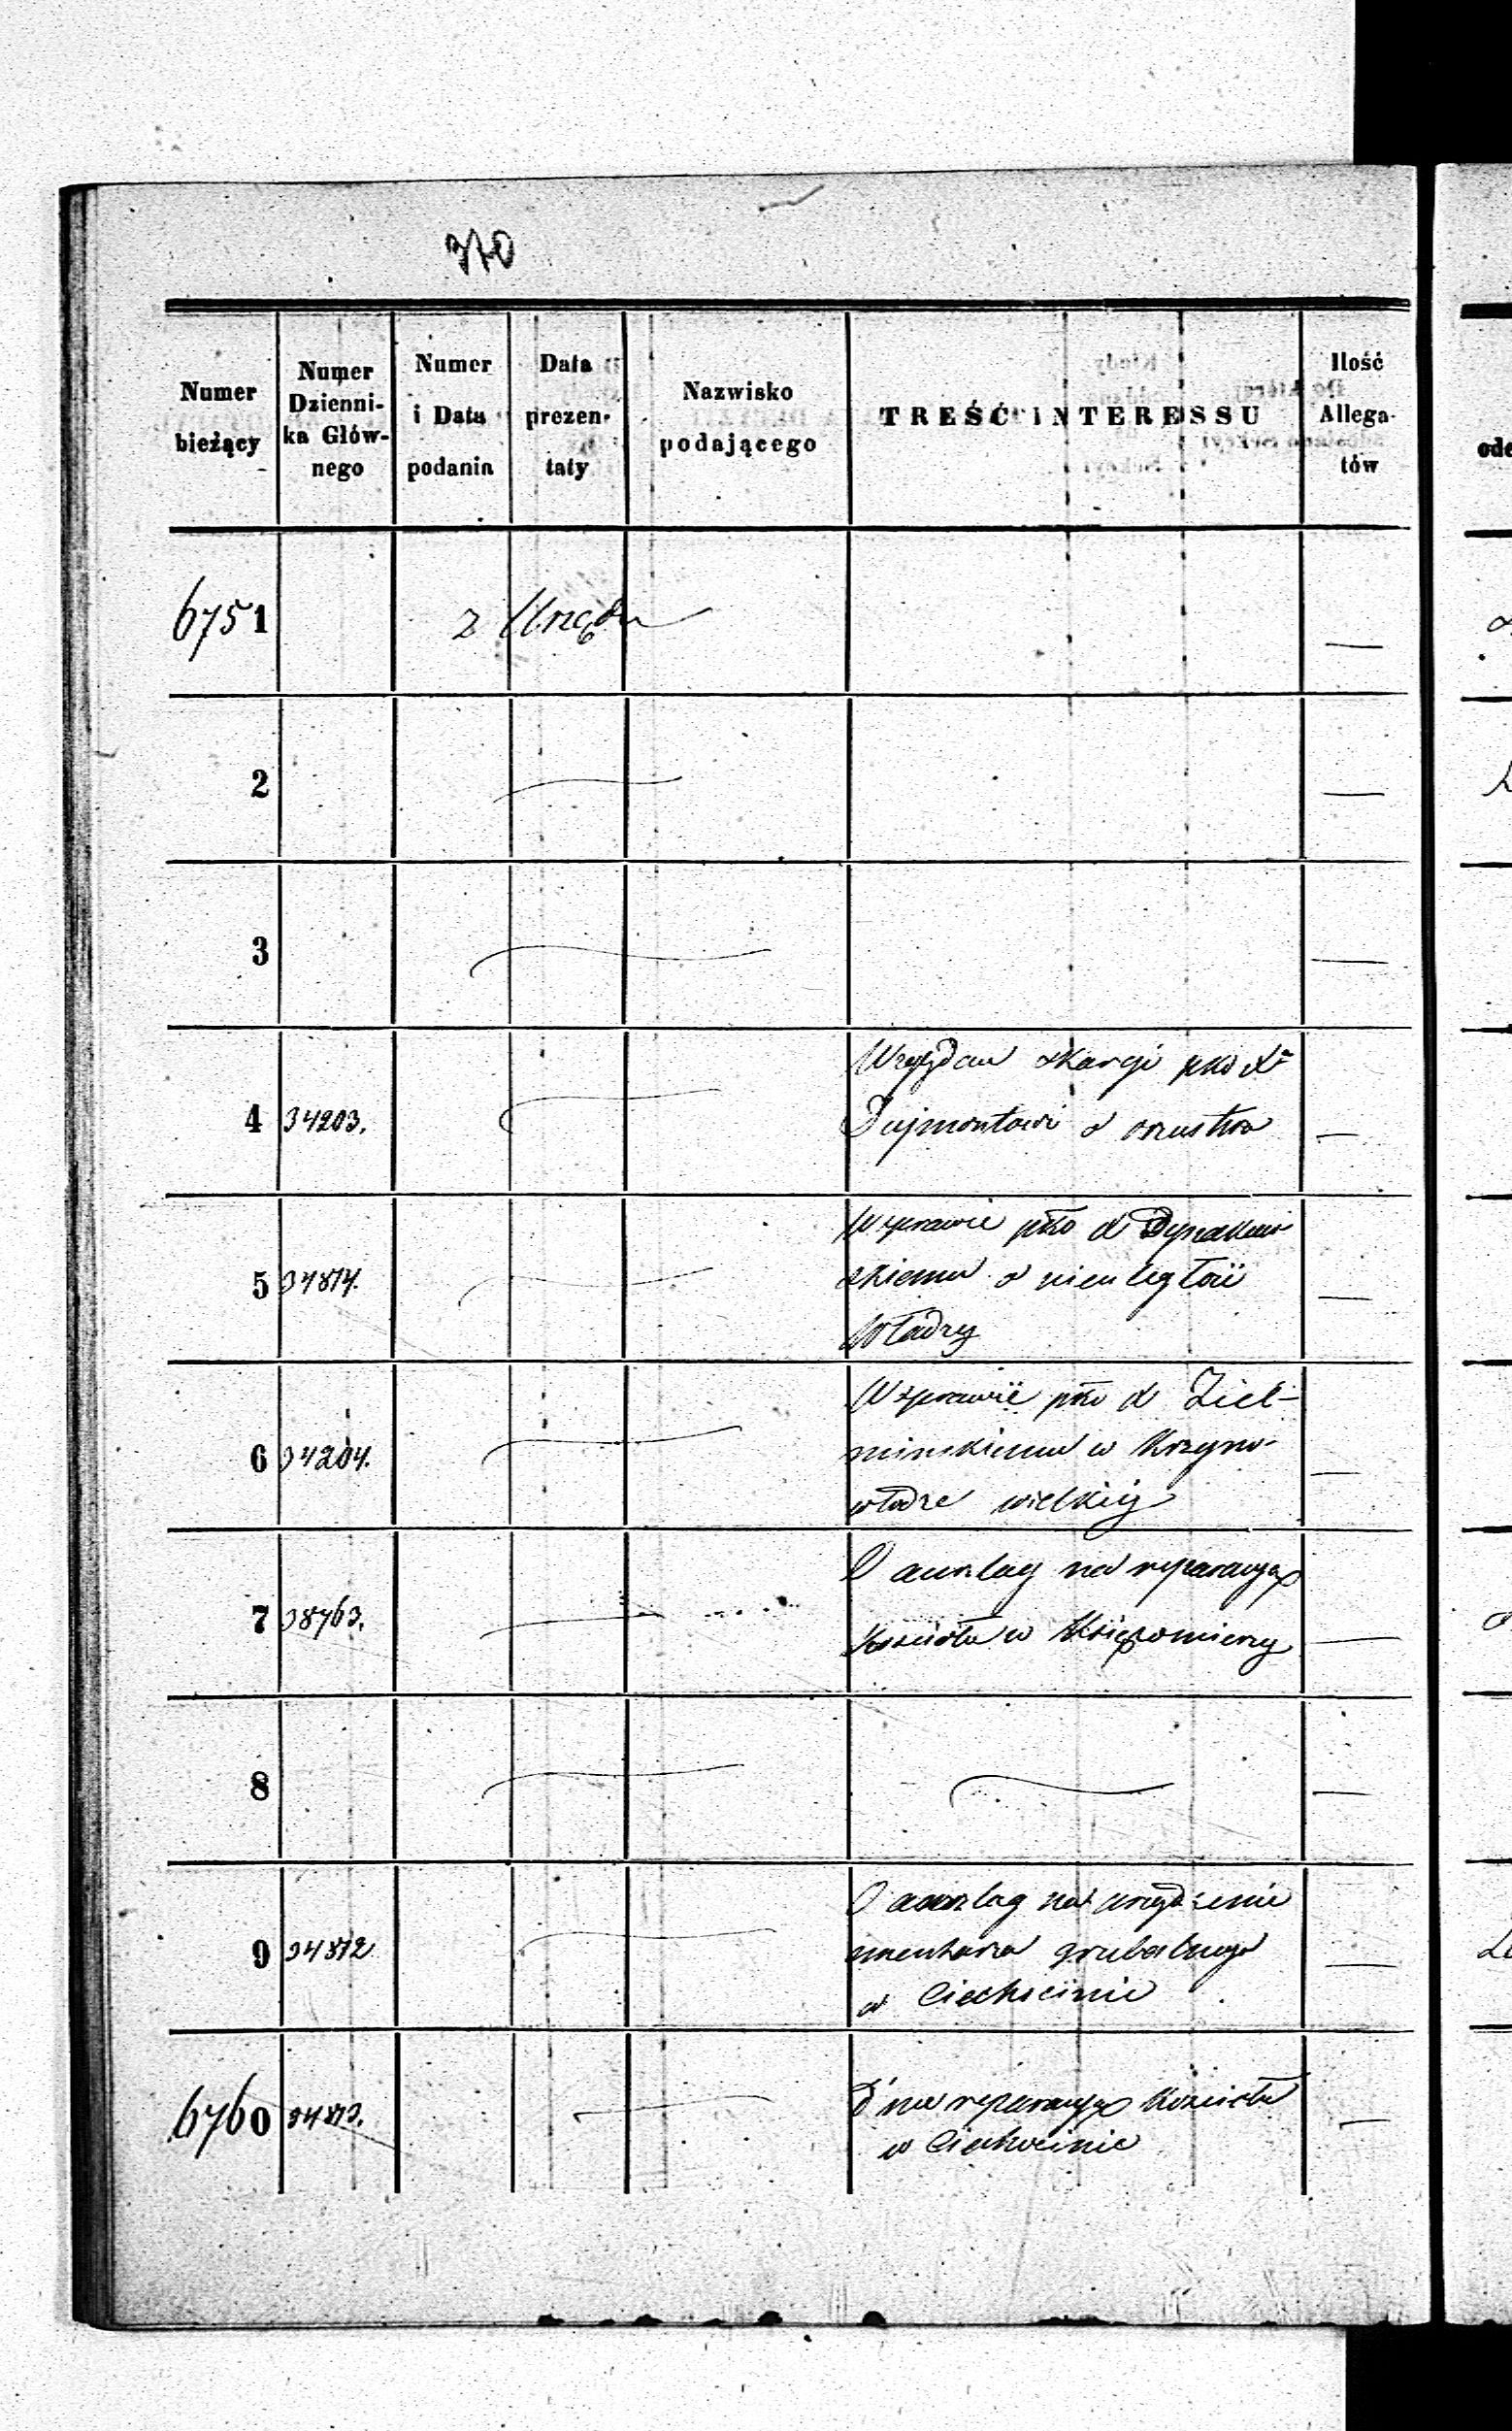 370
Numer bieżący
Numer Dzienni-ka Głów-nego
Numer i Data podania
Data prezen-taty
Nazwisko podającego
TREŚĆ INTERESSU
Ilość Allega-tów
6751 z Urzędu —
2 —
3 —
4 34203. skargi pko Xu
Dujmontowi o oszustwo —
5 34814. W sprawie pko X
skiemu o nieuległość —
Władzy
6 34204. W sprawie pko X Ziel-
mińskiemu w Krzyno- —
włodze wielkiej
7 38763. O anszlag na reparacyą
Kościoła w Księżomierzy —
8 —
9 34812 O anszlag na urządzenie
cmentarza grzebalnego —
w Ciechocinie
6760 34813. D° na reparacyą Kościoła —
w Ciechocinie